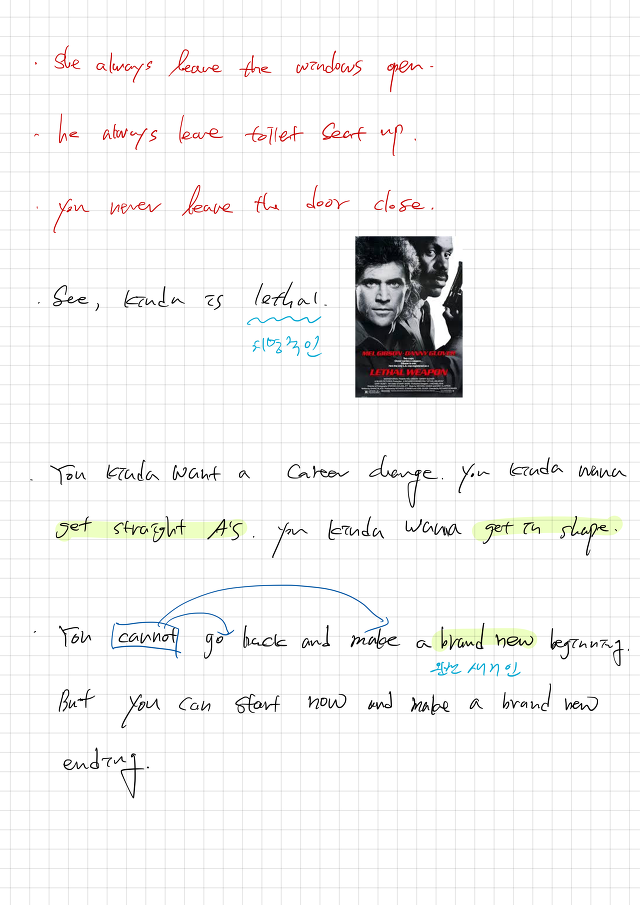 · She always leave the windows open.
- he always leave toilet seat up.
· you never leave the door close.
· See, kinda is lethal.
치명적인
MEL GIBSON DANNY GLOVER
LETHAL WEAPON
· You kinda want a career change. you kinda wanna
get straight A's. you kinda wanna get in shape.
· You cannot go back and make a brand new beginning.
새거인
But you can start now and make a brand new
ending.